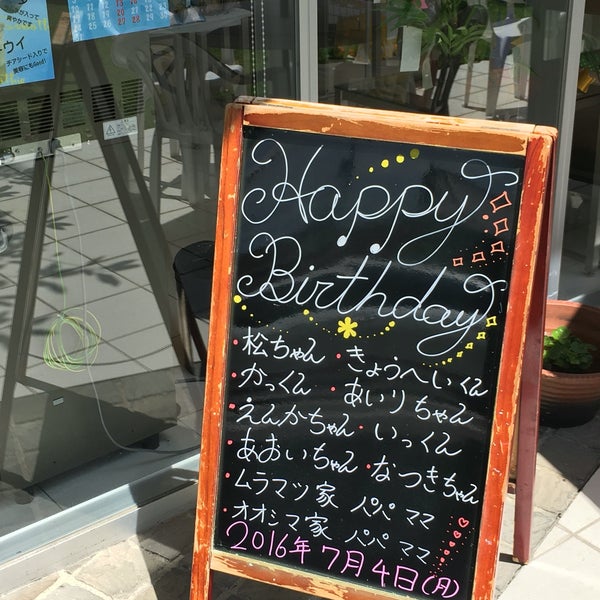 キウイ
チアシード入りで
美容にもGood!
Happy
Birthday
・松ちゃん ・きょうへいくん
・かっくん ・あいりちゃん
・えんかちゃん ・いっくん
・あおいちゃん ・なつきちゃん
・ムラマツ家 パパ ママ
・オオシマ家 パパ ママ
2016年 7月4日(月)